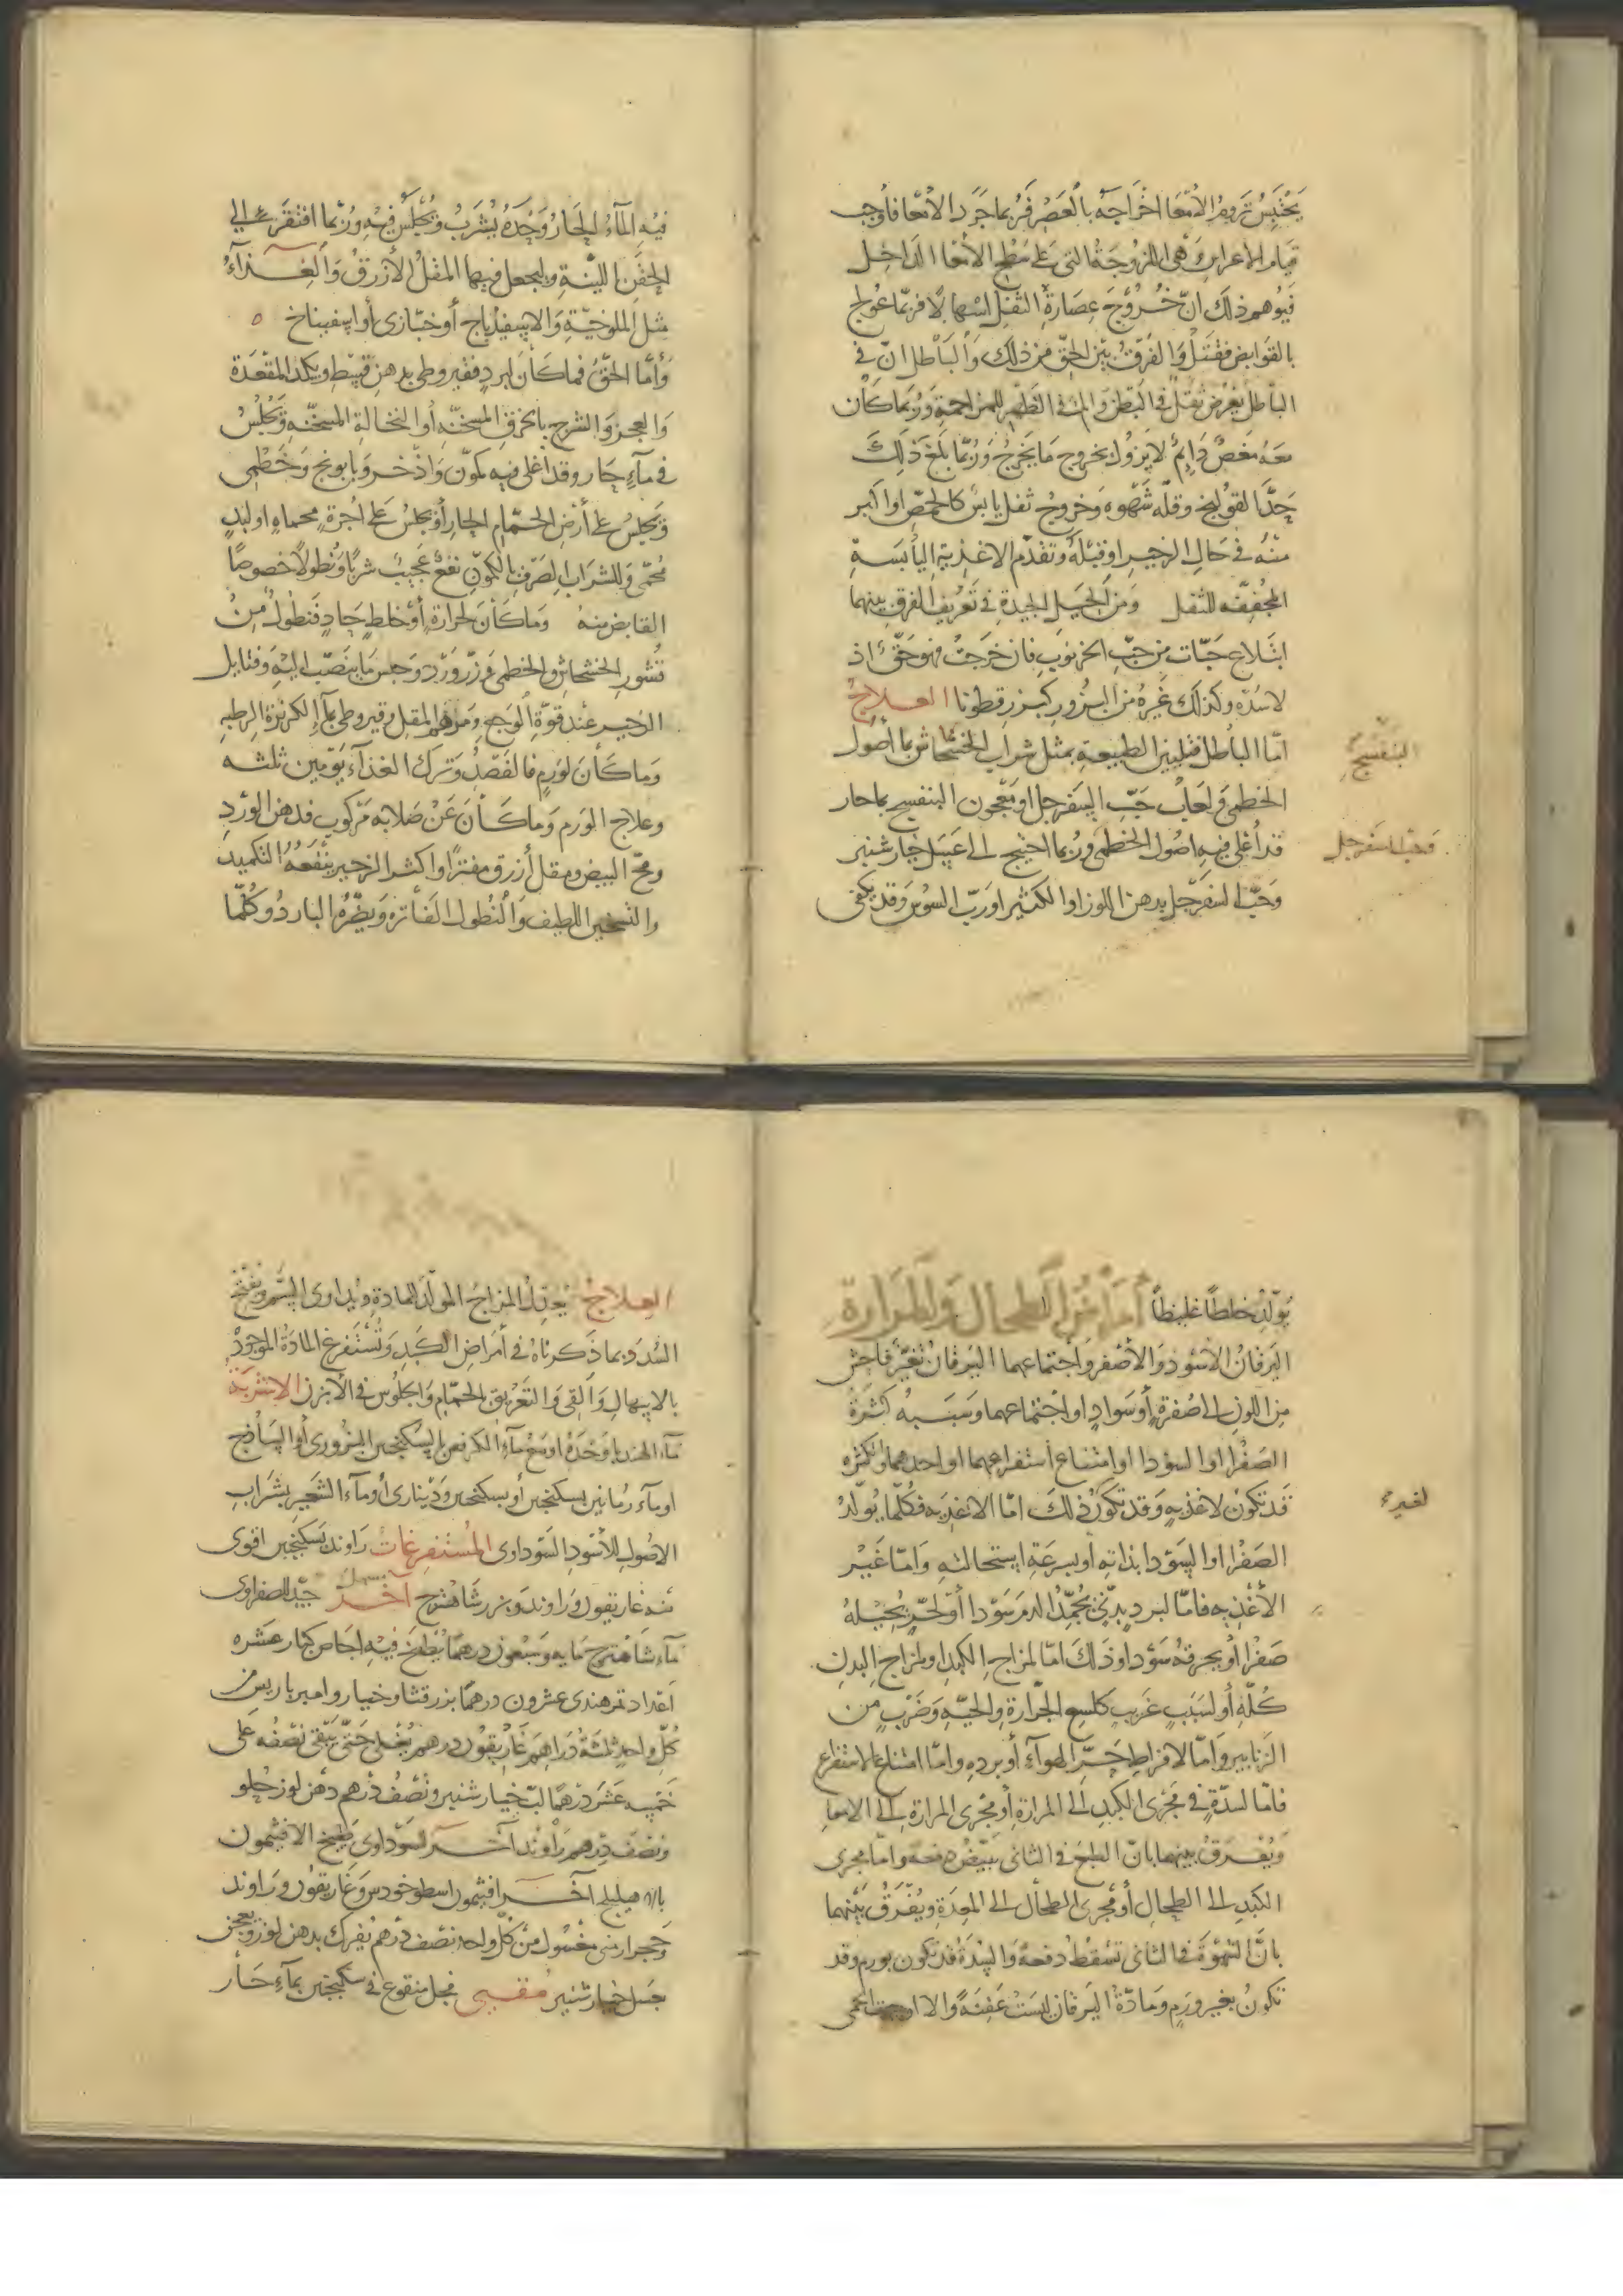 يحتبس تروم الامعا اخراجه بالعصر فربما جرد الامعا فاوجب
قيام الاعراس وهي اللزوجة التي على سطح الامعا الداخل
فيوهم ذلك ان خروج عصارة الثفل اسهالا فربما عولج
بالقوابض فقتل والفرق بين الحق من ذلك والباطل ان في
الباطل يعرض ثقل في البطن والم في الظهر للمزاحمة وربما كان
معه مغص دايم لا يزول بخروج ما يخرج وربما بلغ ذلك
حد القولنج وقلة شهوه وخروج ثفل يابس كالحمص او اكبر
منه في حال الزحير او قبله وتقدم الاغذية اليابسة
المجففه للثفل ومن الحيل الجيدة في تعريف الفرق بينهما
ابتلاع حبات من حب الخرنوب فان خرجت فهو حق اذ
لا سدة وكذلك غيره من البزور كبزر قطونا العلاج
اما الباطل فتليين الطبيعة بمثل شراب الخشخاش بما اصول
البنفسج
الخطمي ولعاب حب السفرجل او معجون البنفسج بما حار
قد اغلي فيه اصول الخطمي وربما احتيج الى عسل خيار شنبر
وحب السفرجل
وحب السفرجل بدهن اللوز او الكثيرا ورب السوس وقد يكفي
فيه الماء الحار وحده يشرب ويجلس فيه وربما افتقر الى
الحقن اللينة وليجعل فيها المقل الازرق والغذاء
مثل الملوخية والاسفيذباج او خبازى او اسفيناخ ه
واما الحق فما كان لبرد فقيروطي بدهن قسط ويكمد المقعدة
والعجز والشرج بالخرق المسخنه او النخالة المسخنه ويجلس
في ماء حار وقد اغلي فيه كمون واذخر وبابونج وخطمي
ويجلس على ارض الحمام الحار او يجلس على اجرة محماه او لبد
محمى وللشراب الصرف بالكمون نفع عجيب شربا ونطولا خصوصا
القابض منه وما كان لحرارة او خلط حاد فنطول من
قشور الخشخاش والخطمي وزر ورد وحبس ما ينصب اليه وفتايل
الزحير عند قوة الوجع ومرهم المقل وقيروطي بماء الكزبرة الرطبه
وما كان لورم فالفصد وترك الغذاء يومين ثلثه
وعلاج الورم وما كان عن صلابه مركوب فدهن الورد
ومح البيض ومقل ازرق مفترا واكثر الزحير ينفعه التكميد
والتسخين اللطيف والنطول الفاتره ويضره البارد وكلما
يولد خلطا غليظا امراض الطحال والمرارة
اليرقان الاسود والاصفر واجتماعهما اليرقان تغير فاحش
من اللون الى صفرة او سواد او اجتماعهما وسببه كثرة
الصفرا او السودا او امتناع استفراغهما او احدهما والكثره
قد تكون لاغذيه وقد تكون ذلك اما الاغذيه فكلما يولد
لغيره
الصفرا او السودا بذاته او بسرعة استحالته واما غير
الاغذيه فاما لبرد بدني يجمد الدم سودا او لحر يحيله
صفرا او يحرقه سودا وذلك اما لمزاج الكبد او لمزاج البدن
كله او لسبب غريب كلسع الجرارة والحيه وضرب من
الزنابير واما لافراط حر الهواء او برده واما امتناع الاستفراغ
فاما لسدة في مجرى الكبد الى المرارة او مجرى المرارة الى الامعا
ويفرق بينهما بان الطبع في الثاني يبيض دفعه واما مجرى
الكبد الى الطحال او مجرى الطحال الى المعدة ويفرق بينهما
بان الشهوة في الثاني تسقط دفعة والسدة قد تكون بورم وقد
تكون بغير ورم ومادة اليرقان ليست عفنة والا اوجبت الحمى
العلاج يعدل المزاج المولد للمادة ويداوى السم ويفتح
السدد بما ذكرناه في امراض الكبد وتستفرغ المادة الموجودة
بالاسهال والقي والتعريق الحمام والجلوس في الابزن الاشربة
ماء الهندبا وحده او مع ماء الكرفس بالسكنجبين البزوري او الساذج
او ماء رمانين بسكنجبين او بسكنجبين وديناري او ماء الشعير بشراب
الاصول للاسود السوداوي المستفرغات راوند بسكنجبين اقوى
منه غاريقون وراوند وبزر شاهترج اخر مسهل جيد للصفراوى
ماء شاهترج مايه وسبعون درهما يطبخ فيه اجاص كبار عشره
اعداد تمر هندي عشرون درهما بزر قثا وخيار وامير باريس من
كل واحد ثلثة دراهم غاريقون درهم يغلى حتى يبقى نصفه على
خمسه عشر درهما لب خيار شنبر ونصف درهم دهن لوز حلو
ونصف درهم راوند اخر لسوداوي طبيخ الافتيمون
بالاهليلج اخر افتيمون اسطوخودس وغاريقون وراوند
وحجر ارمني مغسول من كل واحد نصف درهم يفرك بدهن لوز ويعجن
بعسل خيار شنبر مقيى فجل منقوع في سكنجبين بماء حار